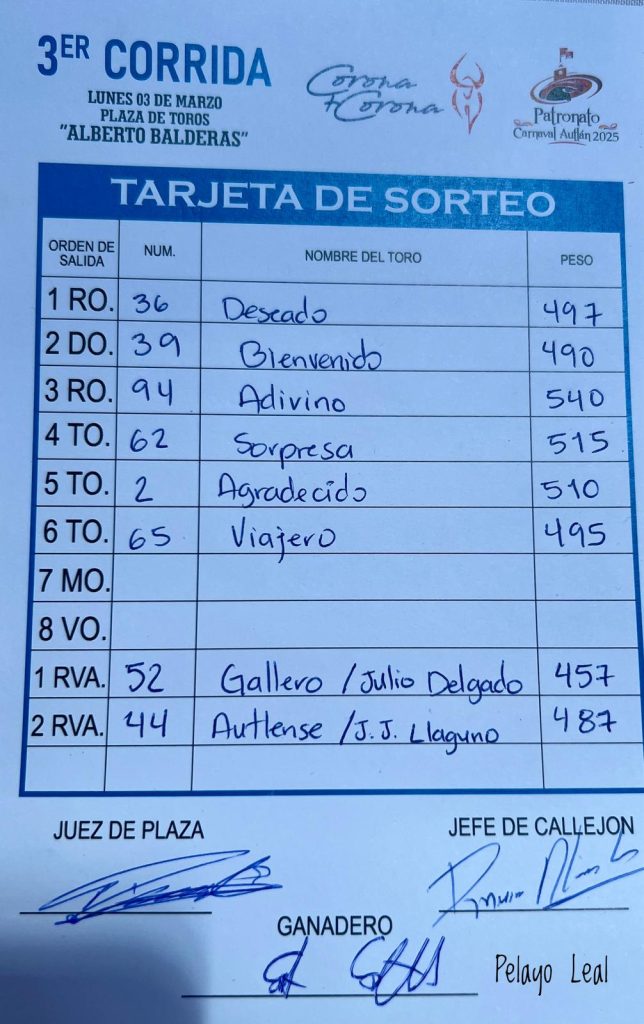 3ER CORRIDA
LUNES 03 DE MARZO
PLAZA DE TOROS
"ALBERTO BALDERAS"
Corona
+ Corona
Patronato
Carnaval Autlán 2025
TARJETA DE SORTEO
ORDEN DE SALIDA NUM. NOMBRE DEL TORO PESO
1 RO. 36 Deseado 497
2 DO. 39 Bienvenido 490
3 RO. 94 Adivino 540
4 TO. 62 Sorpresa 515
5 TO. 2 Agradecido 510
6 TO. 65 Viajero 495
7 MO.
8 VO.
1 RVA. 52 Gallero / Julio Delgado 457
2 RVA. 44 Autlense / J.J. Llaguno 487
JUEZ DE PLAZA
JEFE DE CALLEJON
GANADERO
Pelayo Leal